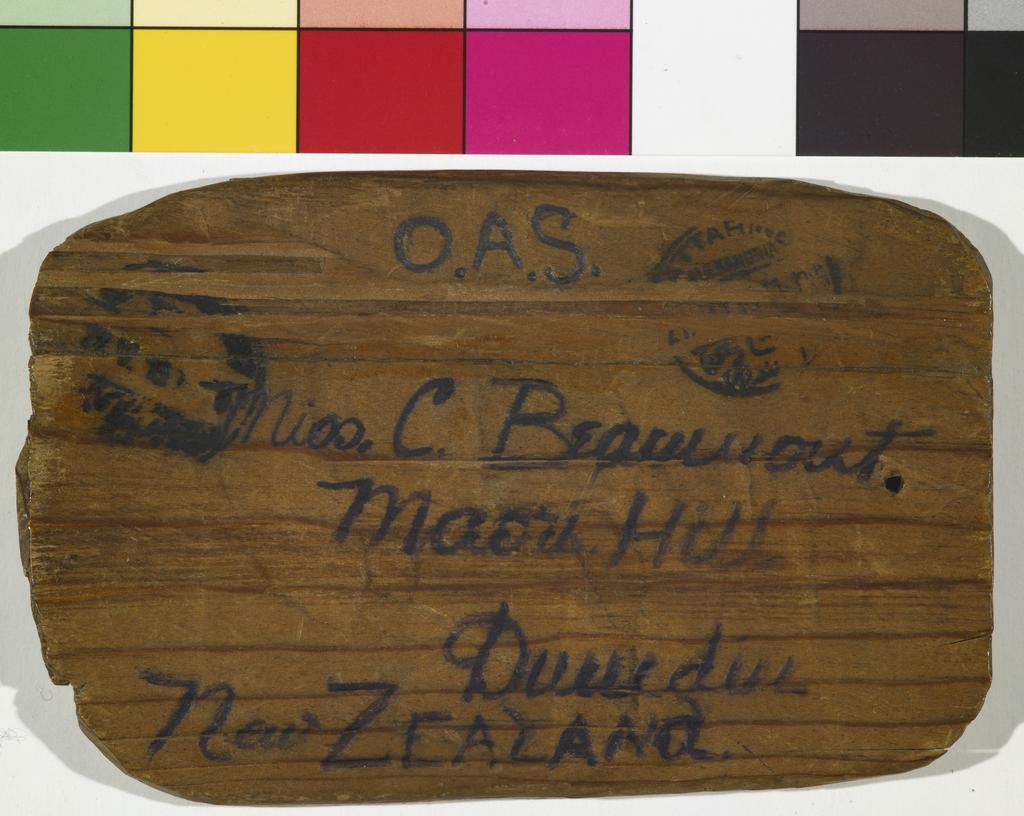 O.A.S.
Miss. C. Beaumont.
Maori Hill
Dunedin
New ZEALAND.